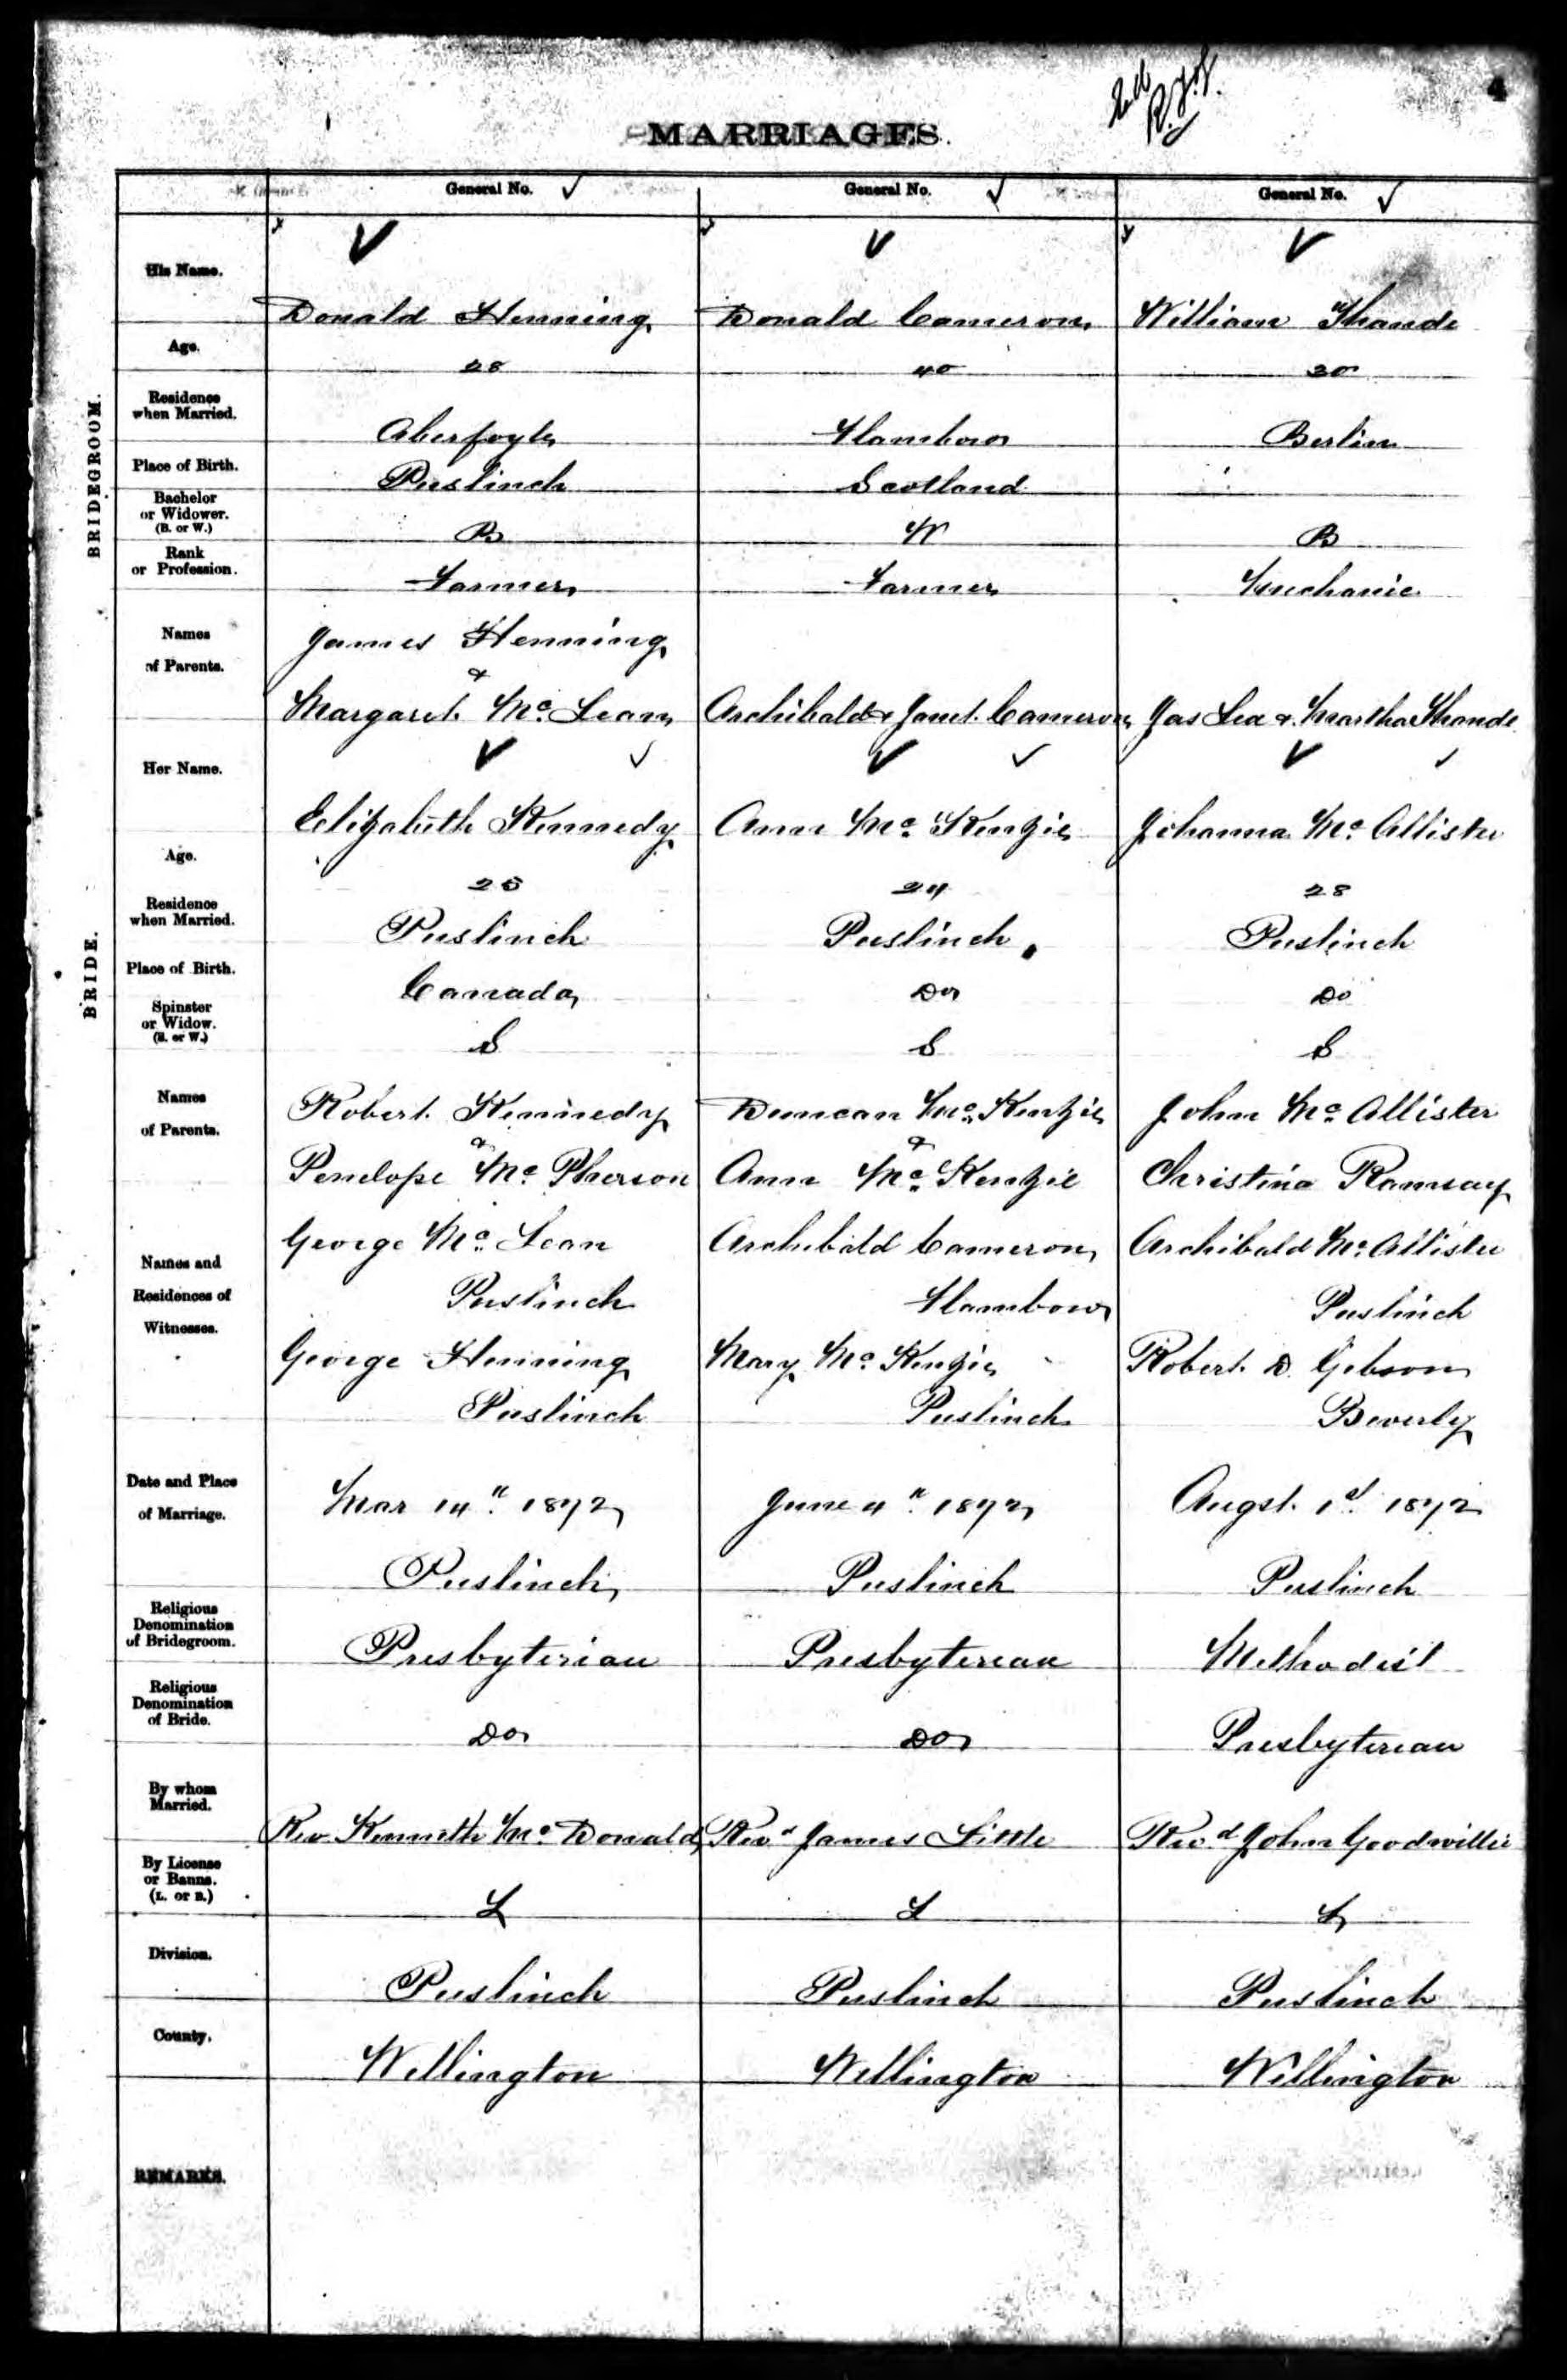 4
MARRIAGES.
General No. General No. General No.
His Name.
Donald Henning Donald Cameron William Thande
Age.
28 40 30
Residence
when Married.
Aberfoyle Flamboro Berlin
Place of Birth.
Puslinch Scotland
Bachelor
or Widower.
(B. or W.)
B W B
Rank
or Profession.
Farmer Farmer Mechanic
BRIDEGROOM.
Names
of Parents.
James Henning
&
Margaret Mc Lean Archibald & Janet Cameron Jas Lea & Martha Thande
Her Name.
Elizabeth Kennedy Ann Mc Kenzie Johanna Mc Allister
Age.
25 24 28
Residence
when Married.
Puslinch Puslinch Puslinch
Place of Birth.
Canada Do Do
Spinster
or Widow.
(S. or W.)
S S S
BRIDE.
Names
of Parents.
Robert Kennedy Duncan Mc Kenzie John Mc Allister
& &
Penelope Mc Pherson Ann Mc Kenzie Christina Ramsay
Names and
Residences of
Witnesses.
George Mc Lean Archibald Cameron Archibald Mc Allister
Puslinch Flamboro Puslinch
George Henning Mary Mc Kenzie Robert D. Gibson
Puslinch Puslinch Beverly
Date and Place
of Marriage.
Mar 14th 1872 June 4th 1872 Augst. 1st 1872
Puslinch Puslinch Puslinch
Religious
Denomination
of Bridegroom.
Presbyterian Presbyterian Methodist
Religious
Denomination
of Bride.
Do Do Presbyterian
By whom
Married.
Rev Kenneth Mc Donald Revd James Little Revd John Goodwillie
By License
or Banns.
(L. or B.)
L L L
Division.
Puslinch Puslinch Puslinch
County.
Wellington Wellington Wellington
REMARKS.